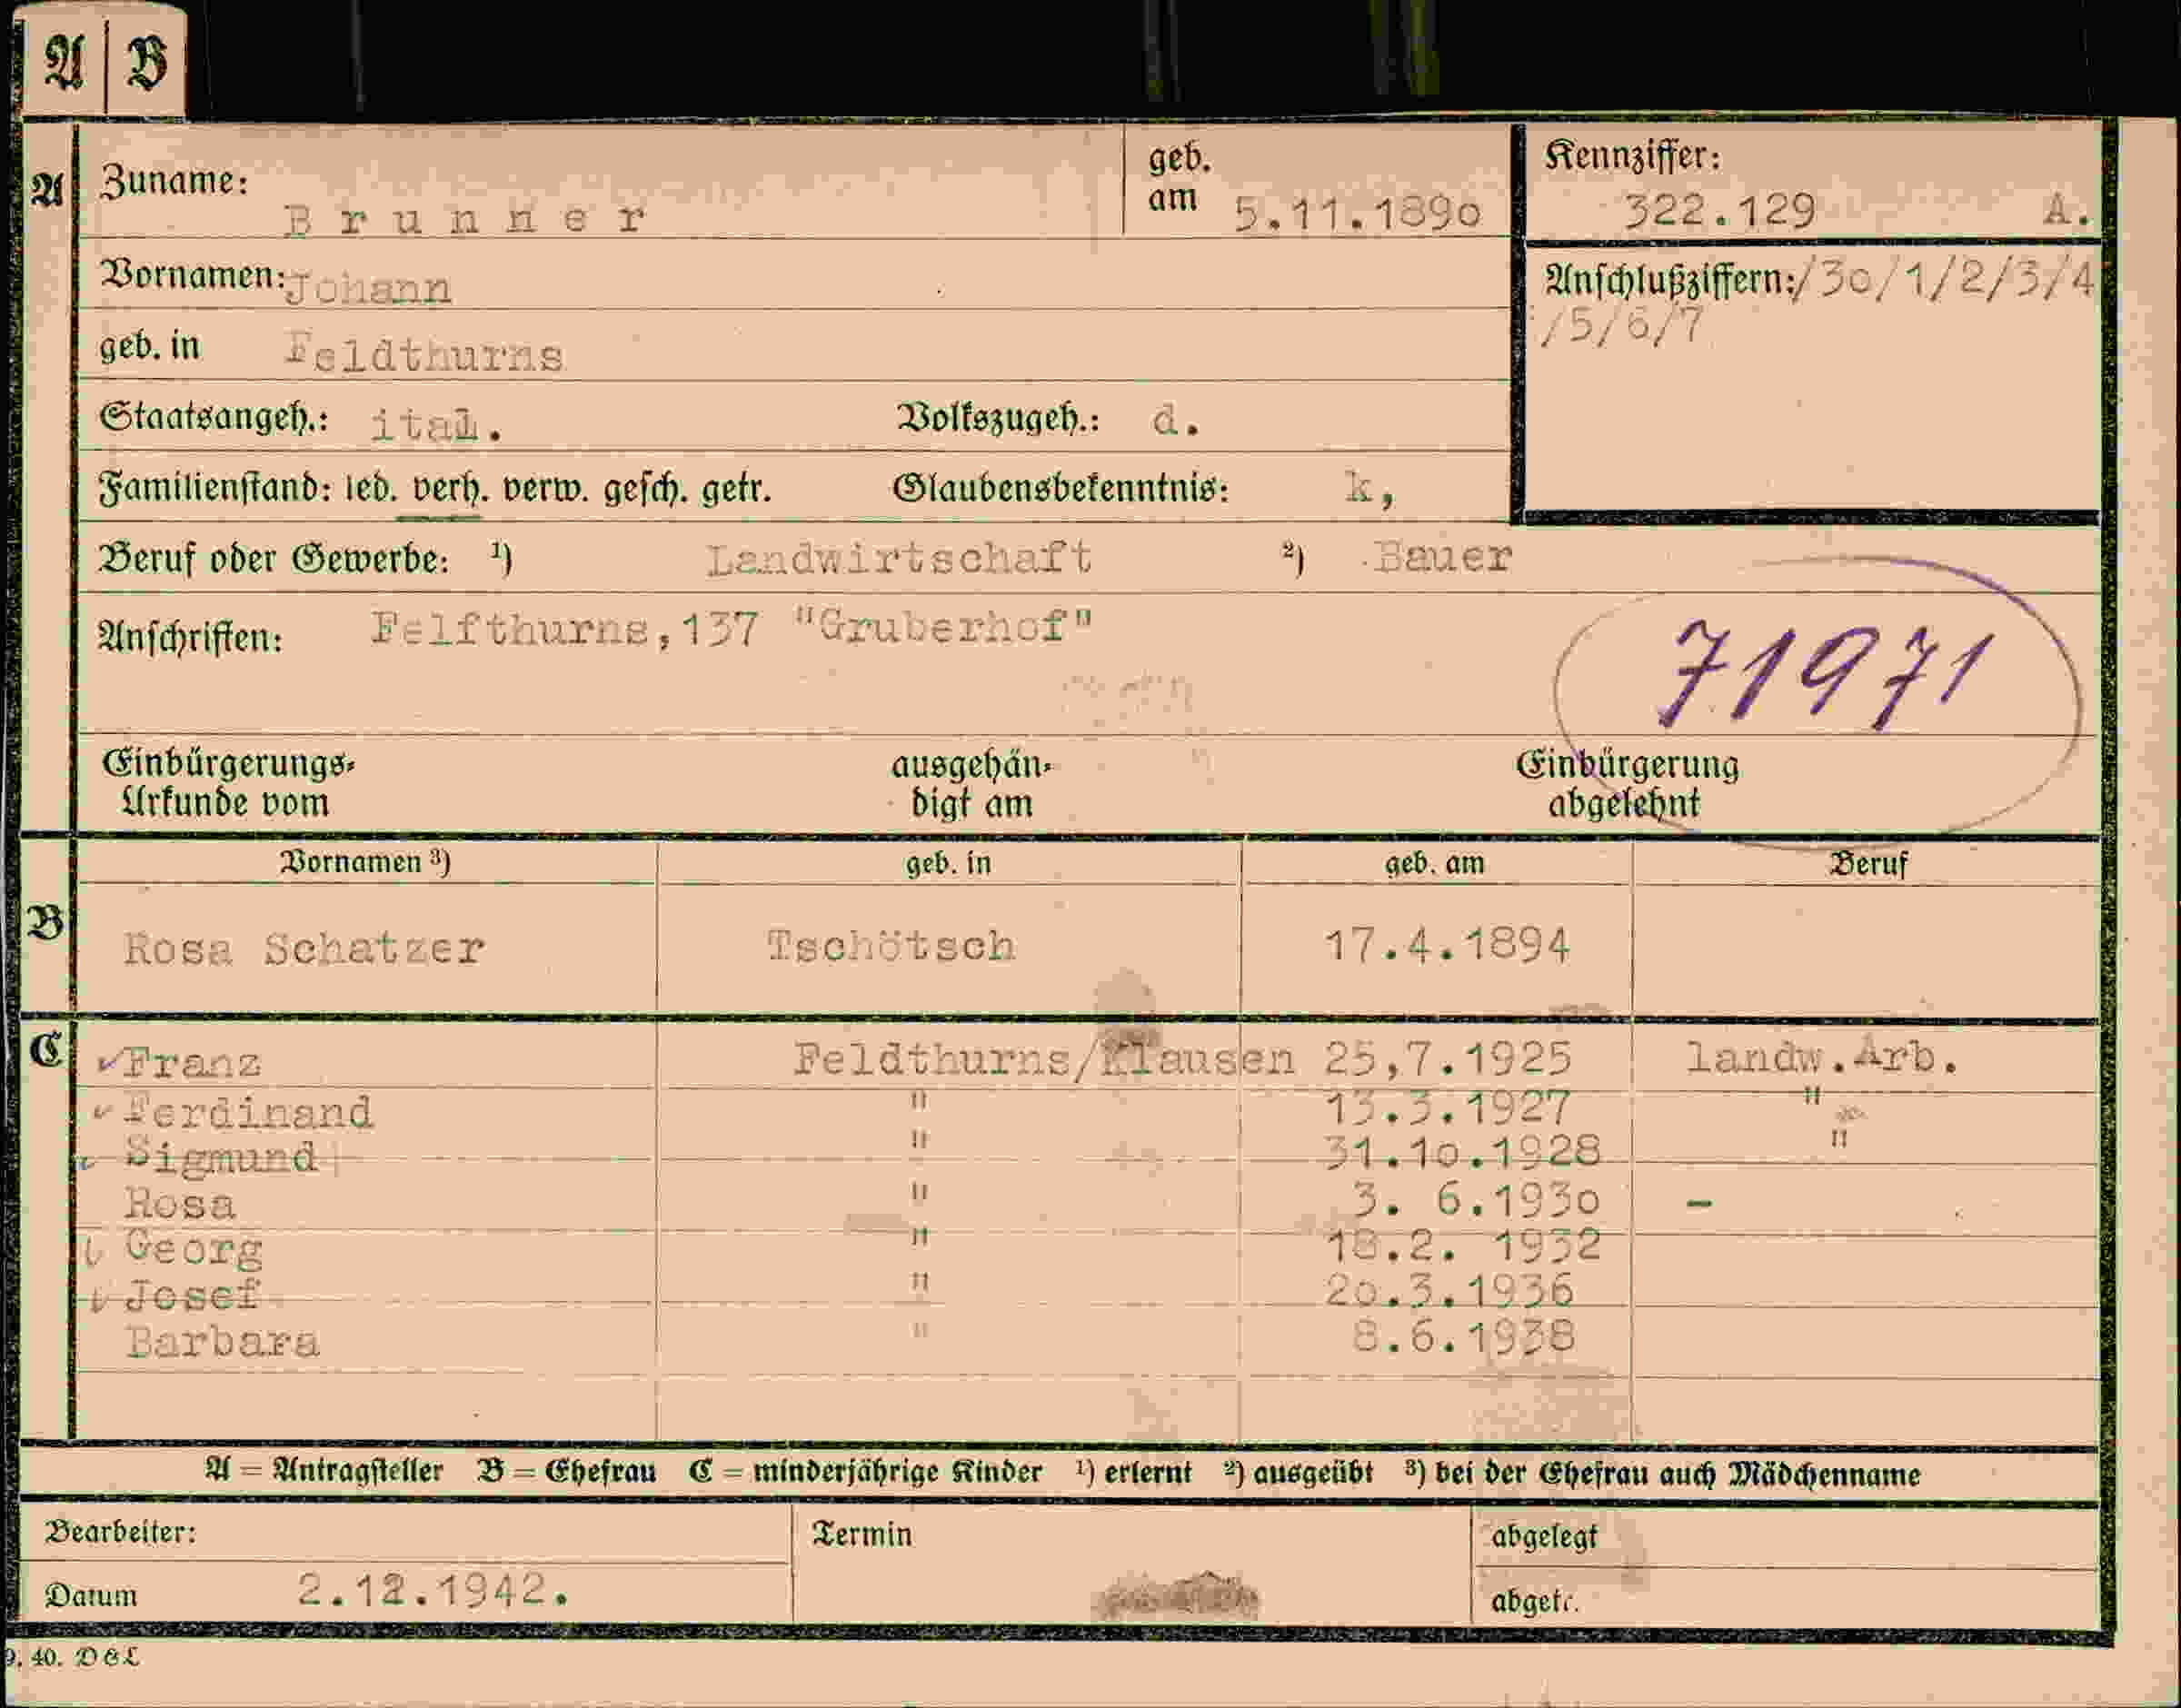 A | B
A Zuname: Brunner geb. am 5.11.1890 Kennziffer: 322.129 A.
Vornamen: Johann Anschlußziffern: /30/1/2/3/4
/5/6/7
geb. in Feldthurns
Staatsangeh.: ital. Volkszugeh.: d.
Familienstand: led. verh. verw. gesch. getr. Glaubensbekenntnis: k,
Beruf oder Gewerbe: ¹) Landwirtschaft ²) Bauer
Anschriften: Felfthurns,137 "Gruberhof"
71971
Einbürgerungs- Urkunde vom ausgehän- digt am Einbürgerung abgelehnt
Vornamen ³) geb. in geb. am Beruf
B Rosa Schatzer Tschötsch 17.4.1894
C Franz Feldthurns/Klausen 25,7.1925 landw.Arb.
Ferdinand " 13.3.1927 "
Sigmund " 31.10.1928 "
Rosa " 3. 6.1930 –
Georg " 18.2. 1932
Josef " 20.3.1936
Barbara " 8.6.1938
A = Antragsteller B = Ehefrau C = minderjährige Kinder ¹) erlernt ²) ausgeübt ³) bei der Ehefrau auch Mädchenname
Bearbeiter: Termin abgelegt
Datum 2.12.1942. abgetr.
40. D&L